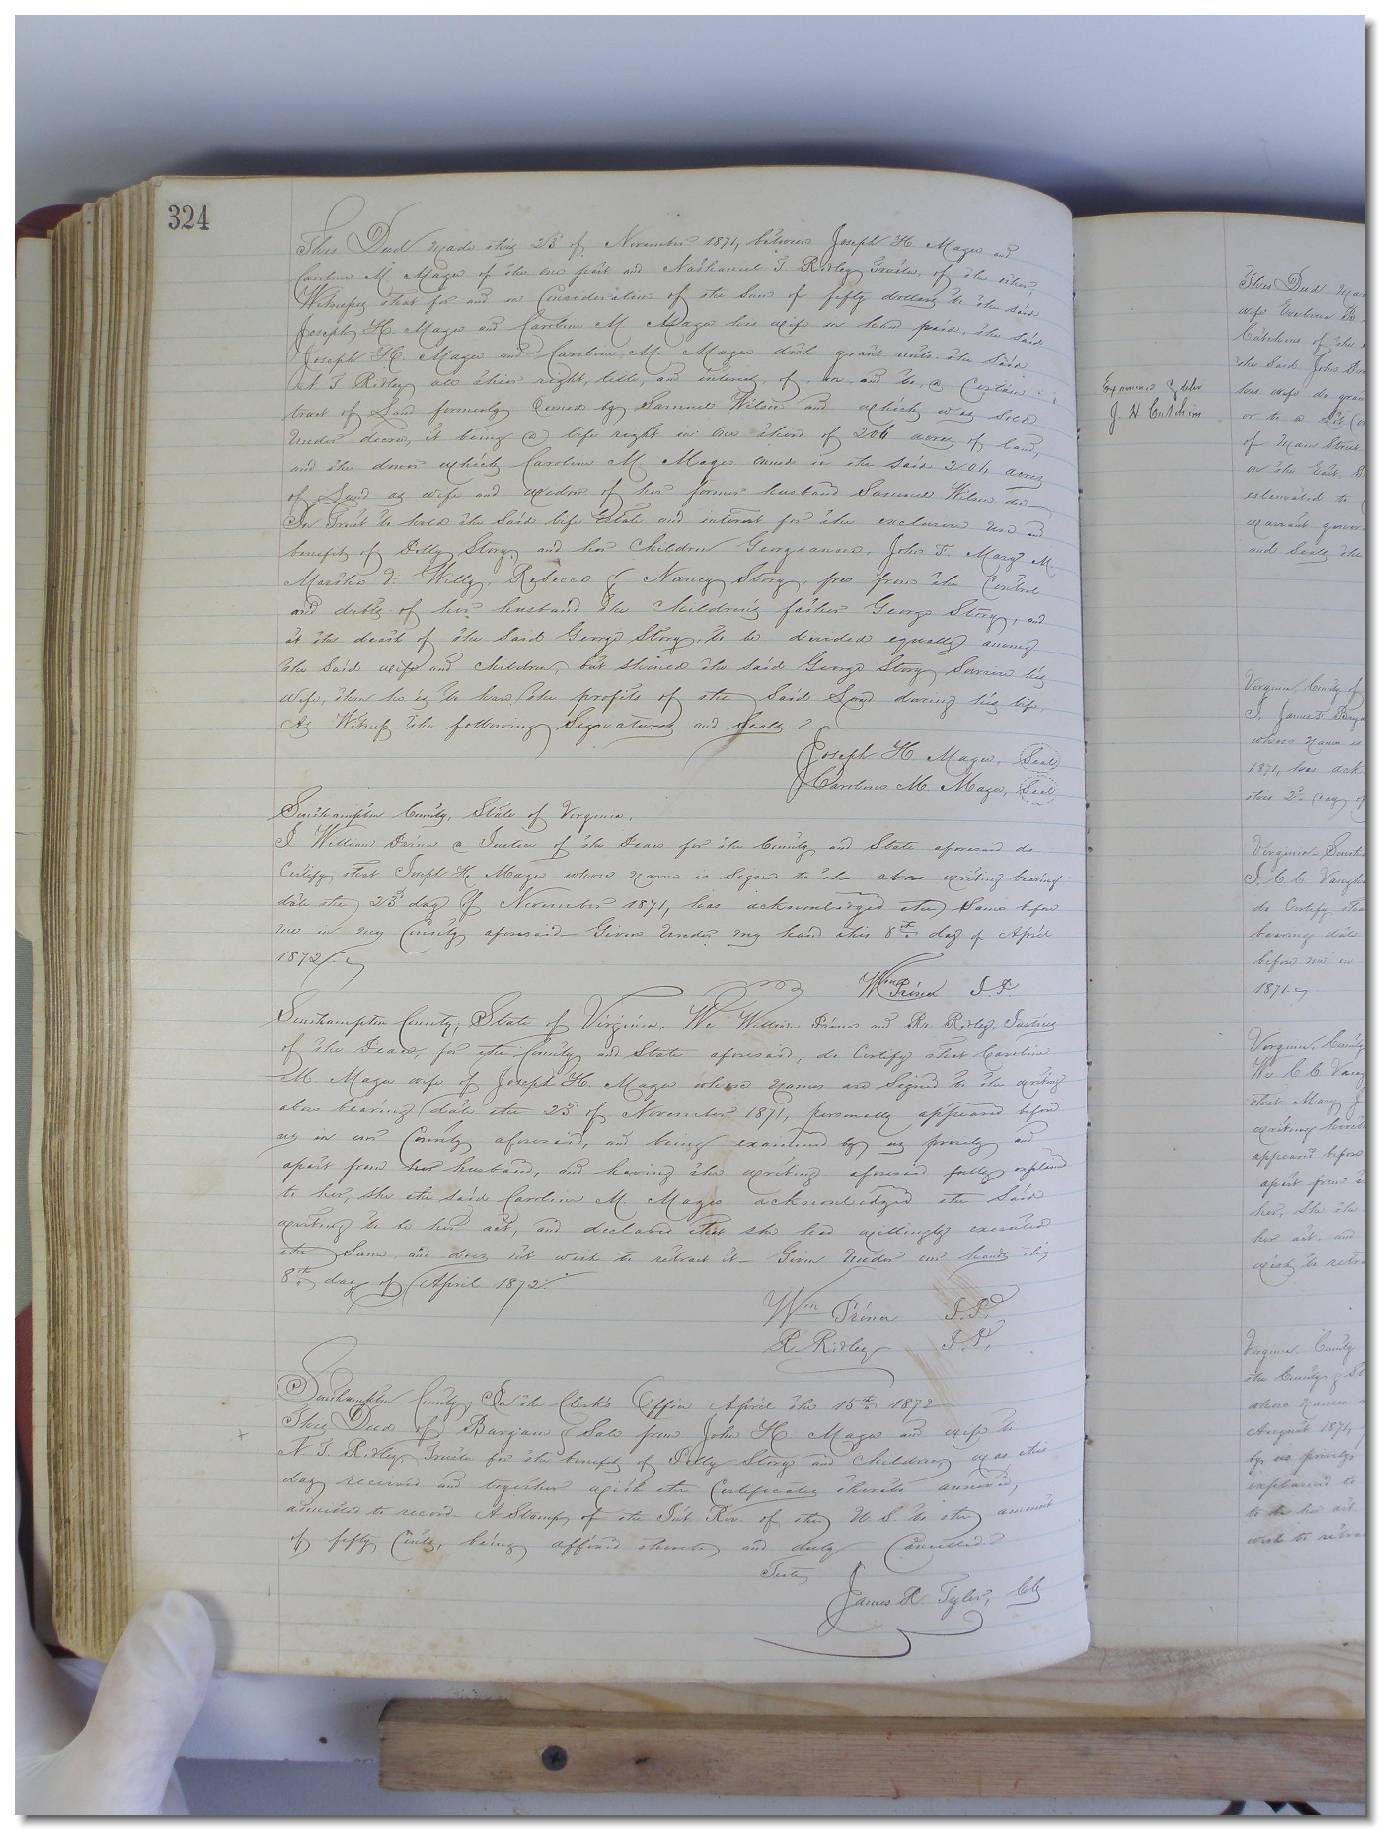 324
This Deed made this 23d of November 1871, between Joseph H. Magee and
Caroline M. Magee of the one part and Nathaniel T. Ridley Trustee, of the other,
Witnesses that for and in Consideration of the Sum of fifty dollars to the said
Joseph H. Magee and Caroline M Magee his wife in hand paid, the said
Joseph H. Magee and Caroline M. Magee doth grant unto the said
N T Ridley all their right, title, and interest, of, in and to, a Certain
tract of Land formerly owned by Samuel Wilson and which was sold
Under decree, it being a life right in one third of 206 acres of land,
and the dower which Caroline M. Magee owned in the said 206 acres
of Land as wife and widow of her former husband Samuel Wilson decd
In Trust to hold the Said life Estate and interest for the exclusive use and
benefit of Polly Story and her Children Georgeanna, John T. Mary M.
Martha D. Willy, Rebecca & Nancy Story, free from the Control
and debts of her husband the children's father George Story, and
at the death of the Said George Story, to be divided equally among
the Said wife and children, but should the said George Story Survive his
wife, then he is to have the profits of the Said Land during his life.
As Witness the following Signatures and Seals
Joseph H. Magee, Seal
Caroline M. Magee, Seal
Southampton County, State of Virginia.
I William Prince a Justice of the Peace for the County and State aforesaid do
Certify that Joseph H. Magee whose name is Signed to the above writing bearing
date the 23d day of November 1871, has acknowledged the Same before
me in my County aforesaid Given Under my hand this 8th day of April
1872
Wm Prince J.P.
Southampton County, State of Virginia. We William Prince and R. Ridley Justices
of the Peace, for the County and State aforesaid, do Certify that Caroline
M Magee wife of Joseph H. Magee whose names are Signed to the writing
above bearing date the 23 of November 1871, personally appeared before
us in our County aforesaid, and being examined by us privily and
apart from her husband, and having the writing aforesaid fully explained
to her, she the said Caroline M. Magee acknowledged the Said
writing to be her act, and declared that she had willingly executed
the Same and does not wish to retract it— Given Under our hands this
8th day of April 1872.
Wm Prince J.P.
R. Ridley J.P.
Southampton County, In the Clerk's Office April the 15th 1872
This Deed of Bargain & Sale from John H. Magee and wife to
N. T. Ridley, Trustee for the benefit of Polly Story and children, was this
day received and together with the Certificates thereto annexed,
admitted to record. A Stamp of the Int Rev. of the U. S. to the amount
of fifty Cents, being affixed thereto and duly Cancelled
Teste
James R. Tyler, Clk
J. H Cutchins
This Deed
wife
Cutchins of the
the Said John
his wife do gran
or to a
of Main Street
on the East
estimated to
warrant gener
and Seals the
Virginia, County of
I, James F. Brya
whose name is
1871, has ack
this 2d day of
Virginia Southa
I, C C Vaugha
do Certify tha
bearing date
before me in
1871
Virginia, County
We C. C. Vaug
that Mary J
writing
appeared before
apart from
her, She the
her act, and
wish to retra
Virginia, County
the County & St
whose name
August 1871,
by us privily
explained to
to be her act.
wish to retra